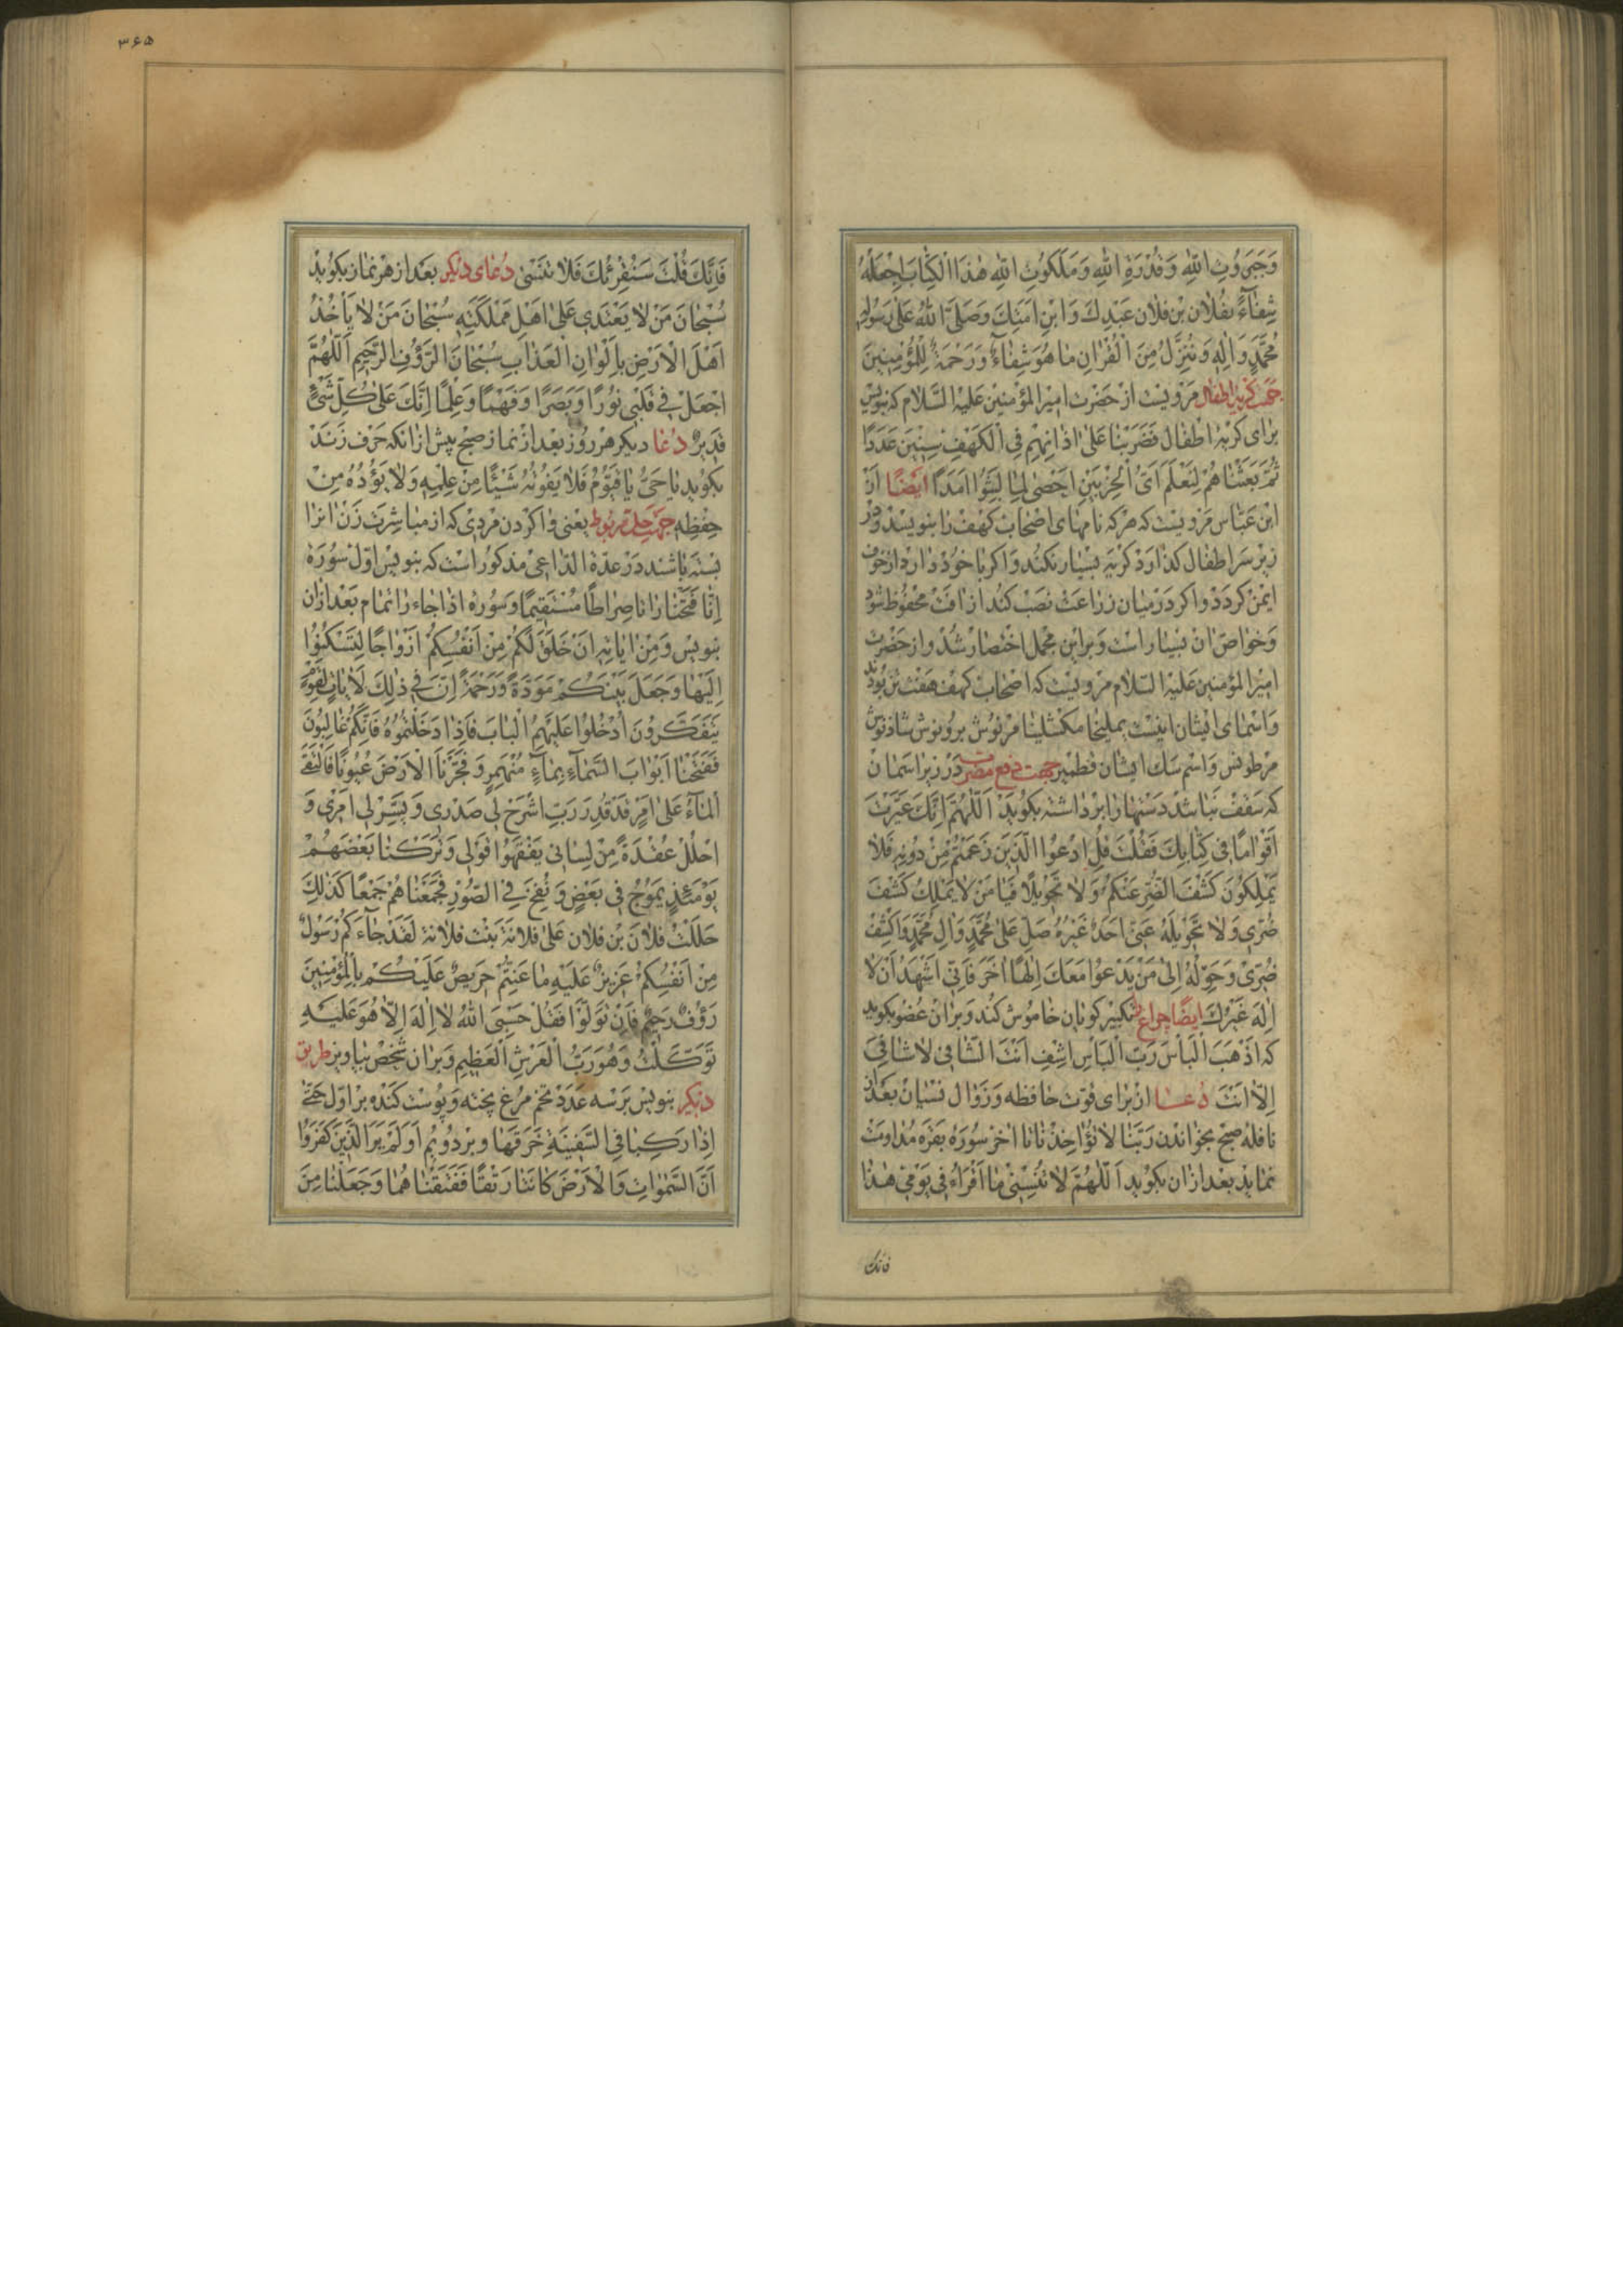 وَجَبَرُوتِ اللّٰهِ وَقُدْرَةِ اللّٰهِ وَمَلَكُوتِ اللّٰهِ هٰذَا الْكِتابَ اِجْعَلْهُ
شِفٰاءً لفُلان بْن فلان عَبْدِكَ وَابْنِ اَمَتِكَ وَصَلَّى اللّٰهُ عَلىٰ رَسُولِهِ
مُحَمَّدٍ وَاٰلِهِ وَنُنَزِّلُ مِنَ الْقُرْاٰنِ مٰا هُوَ شِفٰاءٌ وَرَحْمَةٌ لِلْمُؤْمِنينَ
جهت كريۀ اطفال مرويست از حَضْرت اميرالمؤمنين عليه السّلام كه بنويس
براى كريۀ اطفال فَضَرَبْنا عَلىٰ اٰذٰانِهِمْ فِى الْكَهْفِ سِنينَ عَدَدًا
ثُمَّ بَعَثْناهُمْ لِنَعْلَمَ اَىُّ الْحِزْبَيْنِ اَحْصىٰ لِمٰا لَبِثُوا اَمَدًا ايضًا از
ابن عبّاس مرويست كه هركه نامهاى اصحاب كهف را بنويسد و در
زير سر اطفال كذارد كريه بسيار نكند و اكر با خود دارد از خوف
ايمن كردد و اكر در ميان زراعت نصب كند از افت محفوظ شود
وخواصّ ان بسيار است و براين مجمل اختصار شد و از حضرت
اميرالمؤمنين عليه السّلام مرويست كه اصحاب كهف هفت تن بودند
واسماى ايشان اينست يمليخا مكشلينا مرنوش برونوش شاذنوش
مرطونس واسم سك ايشان قطمير جهت دفع مضرت در زير اسمان
كه سقف نباشد دستها را برداشته بكويد اَللّٰهُمَّ اِنَّكَ عَيَّرْتَ
اَقْوامًا فى كِتابِكَ فَقُلْتَ قُلِ ادْعُوا الَّذينَ زَعَمْتُمْ مِنْ دُونِهِ فَلا
يَمْلِكُونَ كَشْفَ الضُّرِّ عَنْكُمْ وَلا تَحْويلًا فَيا مَنْ لا يَمْلِكُ كَشْفَ
ضُرّى وَلا تَحْويلَهُ عَنّى اَحَدٌ غَيْرُهُ صَلِّ عَلىٰ مُحَمَّدٍ وَاٰلِ مُحَمَّدٍ وَاكْشِفْ
ضُرّى وَحَوِّلْهُ اِلىٰ مَنْ يَدْعُوا مَعَكَ اِلٰهًا اٰخَرَ فَاِنّى اَشْهَدُ اَنْ لا
اِلٰهَ غَيْرُكَ ايضًا چراغ تكبير كويان خاموش كند و بران عضو بكويد
كه اَذْهِبَ الْبَأْسَ رَبَّ الْبَأْسِ اِشْفِ اَنْتَ الشّافى لا شافِىَ
اِلّا اَنْتَ دُعا از براى قوّت حافظه و زوال نسيان بعد از
نافلۀ صبح بخواندن رَبَّنا لا تُؤاخِذْنا تا اخر سورۀ بقره مداومت
نمايد بعد ازان بكويد اَللّٰهُمَّ لا تُنْسِنى ما اَقْرَاُ فى يَوْمى هٰذا
فانّك
٣۶۵
فَاِنَّكَ قُلْتَ سَنُقْرِئُكَ فَلا تَنْسىٰ دُعاى ديكر بعد از هر نماز بكويد
سُبْحانَ مَنْ لا يَعْتَدى عَلىٰ اَهْلِ مَمْلَكَتِهِ سُبْحانَ مَنْ لا يَأْخُذُ
اَهْلَ الْاَرْضِ بِاَلْوانِ الْعَذابِ سُبْحانَ الرَّؤُفِ الرَّحيمِ اَللّٰهُمَّ
اجْعَلْ فى قَلْبى نُورًا وَبَصَرًا وَفَهْمًا وَعِلْمًا اِنَّكَ عَلىٰ كُلِّ شَىْءٍ
قَديرٌ دُعا ديكر هر روز بعد از نماز صبح پيش از انكه حرف زند
بكويد يا حَىُّ يا قَيُّومُ فَلا يَفُوتُهُ شَيْئًا مِنْ عِلْمِهِ وَلا يَؤُدُهُ مِنْ
حِفْظِهِ جهت حلّ مربوط يعنى واكردن مردى كه از مباشرت زن انرا
بسته باشند در عدّة الدّاعى مذكور است كه بنويس اوّل سورۀ
اِنّا فَتَحْنا را تا صِراطًا مُسْتَقيمًا وسورۀ اذا جاء را تمام بعد ازان
بنويس وَمِنْ اٰياتِهِ اَنْ خَلَقَ لَكُمْ مِنْ اَنْفُسِكُمْ اَزْواجًا لِتَسْكُنُوا
اِلَيْها وَجَعَلَ بَيْنَكُمْ مَوَدَّةً وَرَحْمَةً اِنَّ فى ذٰلِكَ لَاٰياتٍ لِقَوْمٍ
يَتَفَكَّرُونَ اُدْخُلُوا عَلَيْهِمُ الْبابَ فَاِذا دَخَلْتُمُوهُ فَاِنَّكُمْ غالِبُونَ
فَفَتَحْنا اَبْوابَ السَّمآءِ بِمآءٍ مُنْهَمِرٍ وَفَجَّرْنَا الْاَرْضَ عُيُونًا فَالْتَقَى
الْمآءُ عَلىٰ اَمْرٍ قَدْ قُدِرَ رَبِّ اشْرَحْ لى صَدْرى وَيَسِّرْ لى اَمْرى وَ
احْلُلْ عُقْدَةً مِنْ لِسانى يَفْقَهُوا قَوْلى وَتَرَكْنا بَعْضَهُمْ
يَوْمَئِذٍ يَمُوجُ فى بَعْضٍ وَنُفِخَ فِى الصُّورِ فَجَمَعْناهُمْ جَمْعًا كَذٰلِكَ
حَلَلْتُ فلانَ بْن فلان عَلىٰ فلانة بنت فلانة لَقَدْ جآءَكُمْ رَسُولٌ
مِنْ اَنْفُسِكُمْ عَزيزٌ عَلَيْهِ ما عَنِتُّمْ حَريصٌ عَلَيْكُمْ بِالْمُؤْمِنينَ
رَؤُفٌ رَحيمٌ فَاِنْ تَوَلَّوْا فَقُلْ حَسْبِىَ اللّٰهُ لا اِلٰهَ اِلّا هُوَ عَلَيْهِ
تَوَكَّلْتُ وَهُوَ رَبُّ الْعَرْشِ الْعَظيمِ وبران شخص بياويز طريق
ديكر بنويس بر سه عدد تخم مرغ پخته و پوست كنده بر اوّل حَتّىٰ
اِذا رَكِبا فِى السَّفينَةِ خَرَقَها و بر دويم اَوَلَمْ يَرَ الَّذينَ كَفَرُوا
اَنَّ السَّمٰواتِ وَالْاَرْضَ كانَتا رَتْقًا فَفَتَقْناهُما وَجَعَلْنا مِنَ